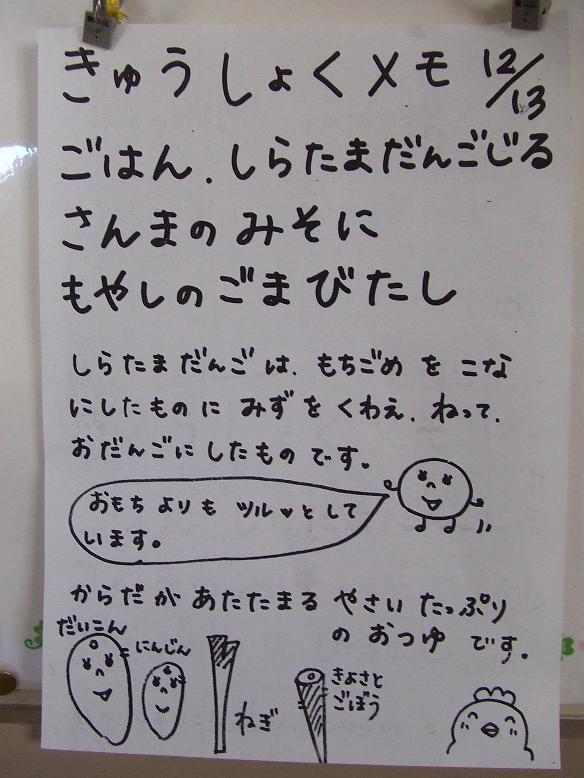 きゅうしょくメモ 12/13
ごはん、しらたまだんごじる
さんまのみそに
もやしのごまびたし
しらたまだんごは、もちごめをこな
にしたものにみずをくわえ、ねって、
おだんごにしたものです。
おもちよりもツルッとして
います。
からだがあたたまるやさいたっぷり
のおつゆです。
だいこん
にんじん
ねぎ
きよさと
ごぼう